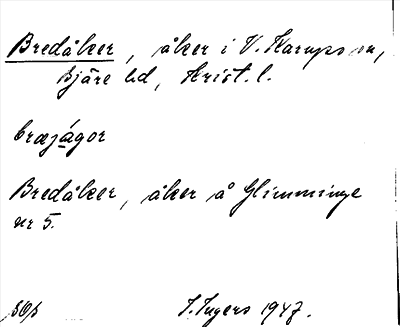 Bredåker, åker i V. Karups sn,
Bjäre hd, Krist. l.
bræjágor
Bredåker, åker å Glimminge
nr 5.
I. Ingers 1947.